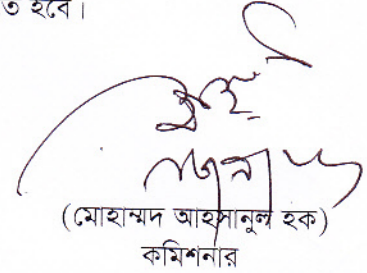 ত হবে।
(মোহাম্মদ আহসানুল হক)
কমিশনার